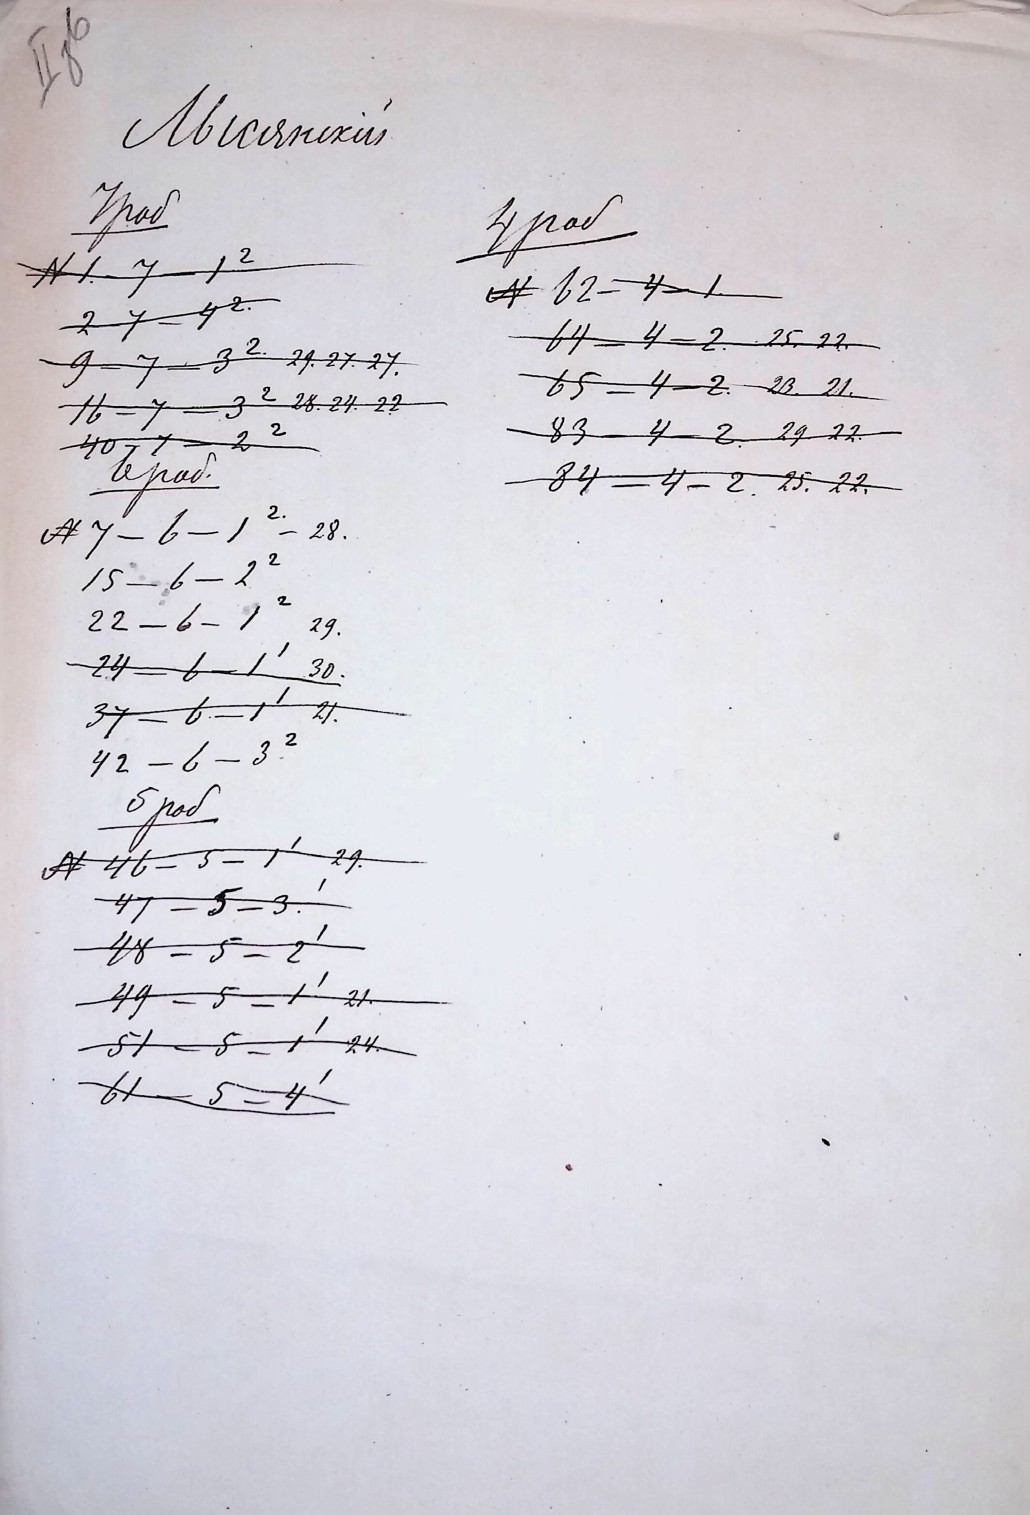 Лысянскій
7 раб
N 1 - 7 - 1²
2 7 - 4².
9 - 7 - 3². 29. 27. 27.
16 - 7 - 3² 28. 24. 22
40 - 7 - 2²
6 раб.
N 7 - 6 - 1². - 28.
15 - 6 - 2²
22 - 6 - 1² 29.
24 - 6 - 1' 30.
37 - 6 - 1' 21.
42 - 6 - 3²
5 раб
N 46 - 5 - 1' 29.
47 - 5 - 3.'
48 - 5 - 2'
49 - 5 - 1' 21.
51 - 5 - 1' 24.
61 - 5 - 4'
4 раб
N 62 - 4 - 1.
64 - 4 - 2. 25. 22.
65 - 4 - 2. 23. 21.
83 - 4 - 2. 29 22.
84 - 4 - 2. 25. 22.